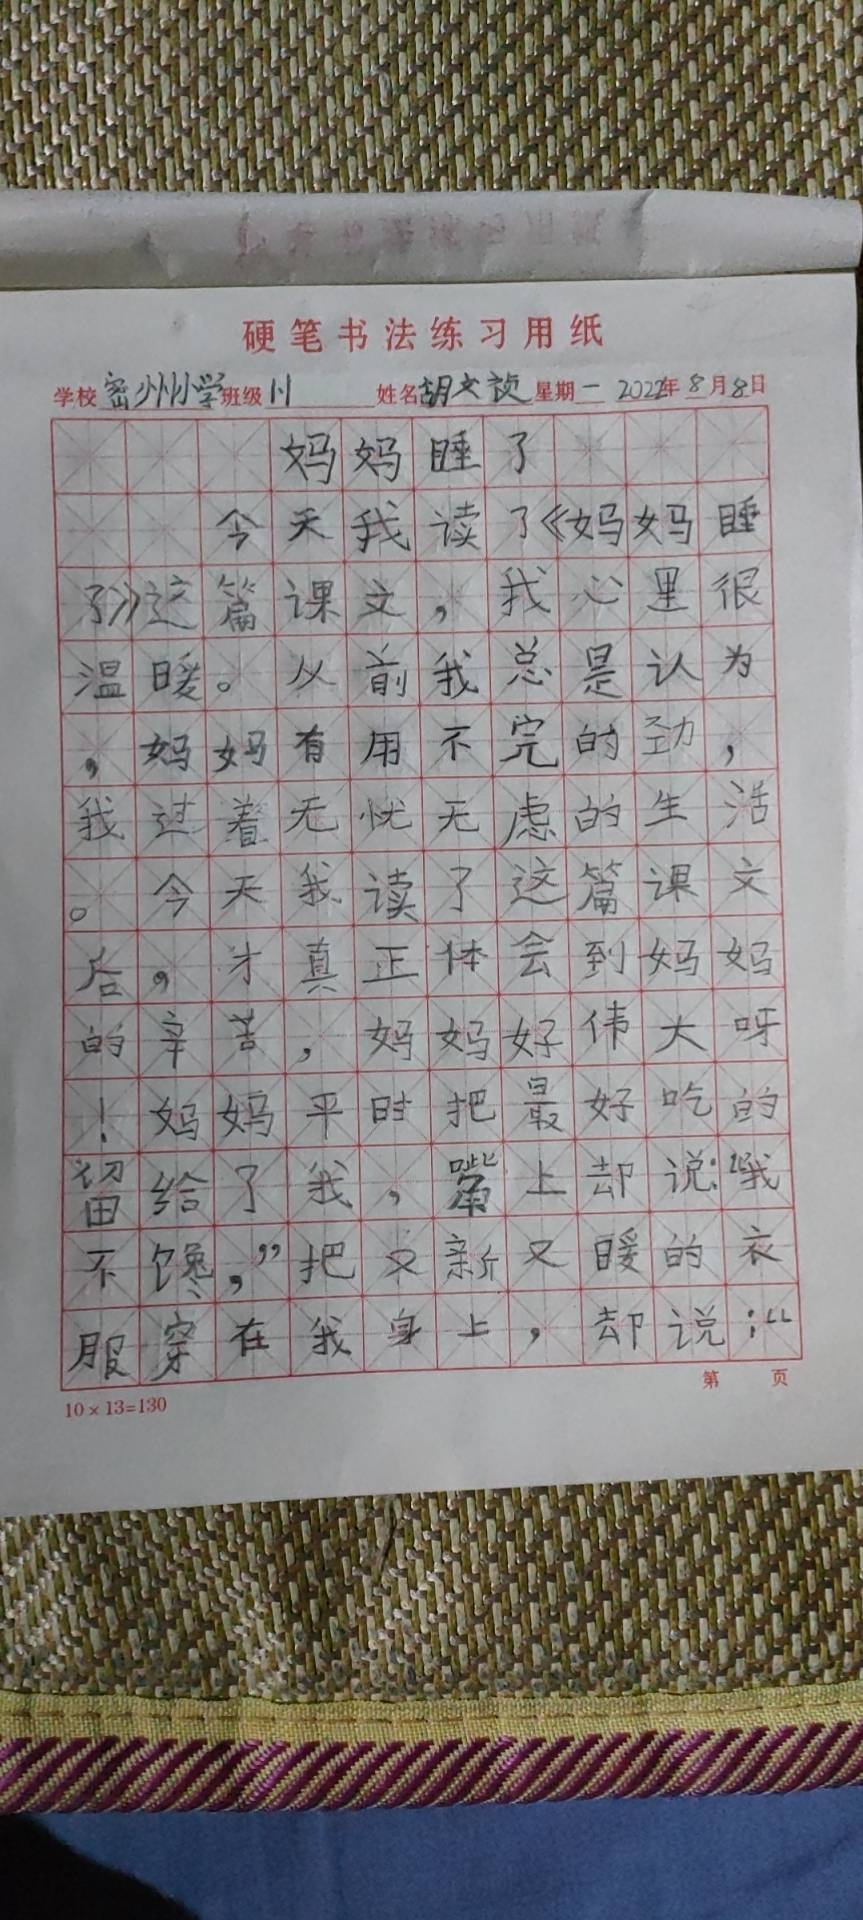 硬笔书法练习用纸
学校密州小学班级1.1 姓名胡文祯星期一 2022年8月8日
妈妈睡了
今天我读了《妈妈睡
了》这篇课文，我心里很
温暖。从前我总是认为
，妈妈有用不完的劲，
我过着无忧无虑的生活
。今天我读了这篇课文
后，才真正体会到妈妈
的辛苦，妈妈好伟大呀
！妈妈平时把最好吃的
留给了我，嘴上却说：“我
不馋，”把又新又暖的衣
服穿在我身上，却说：“
第 页
10×13=130